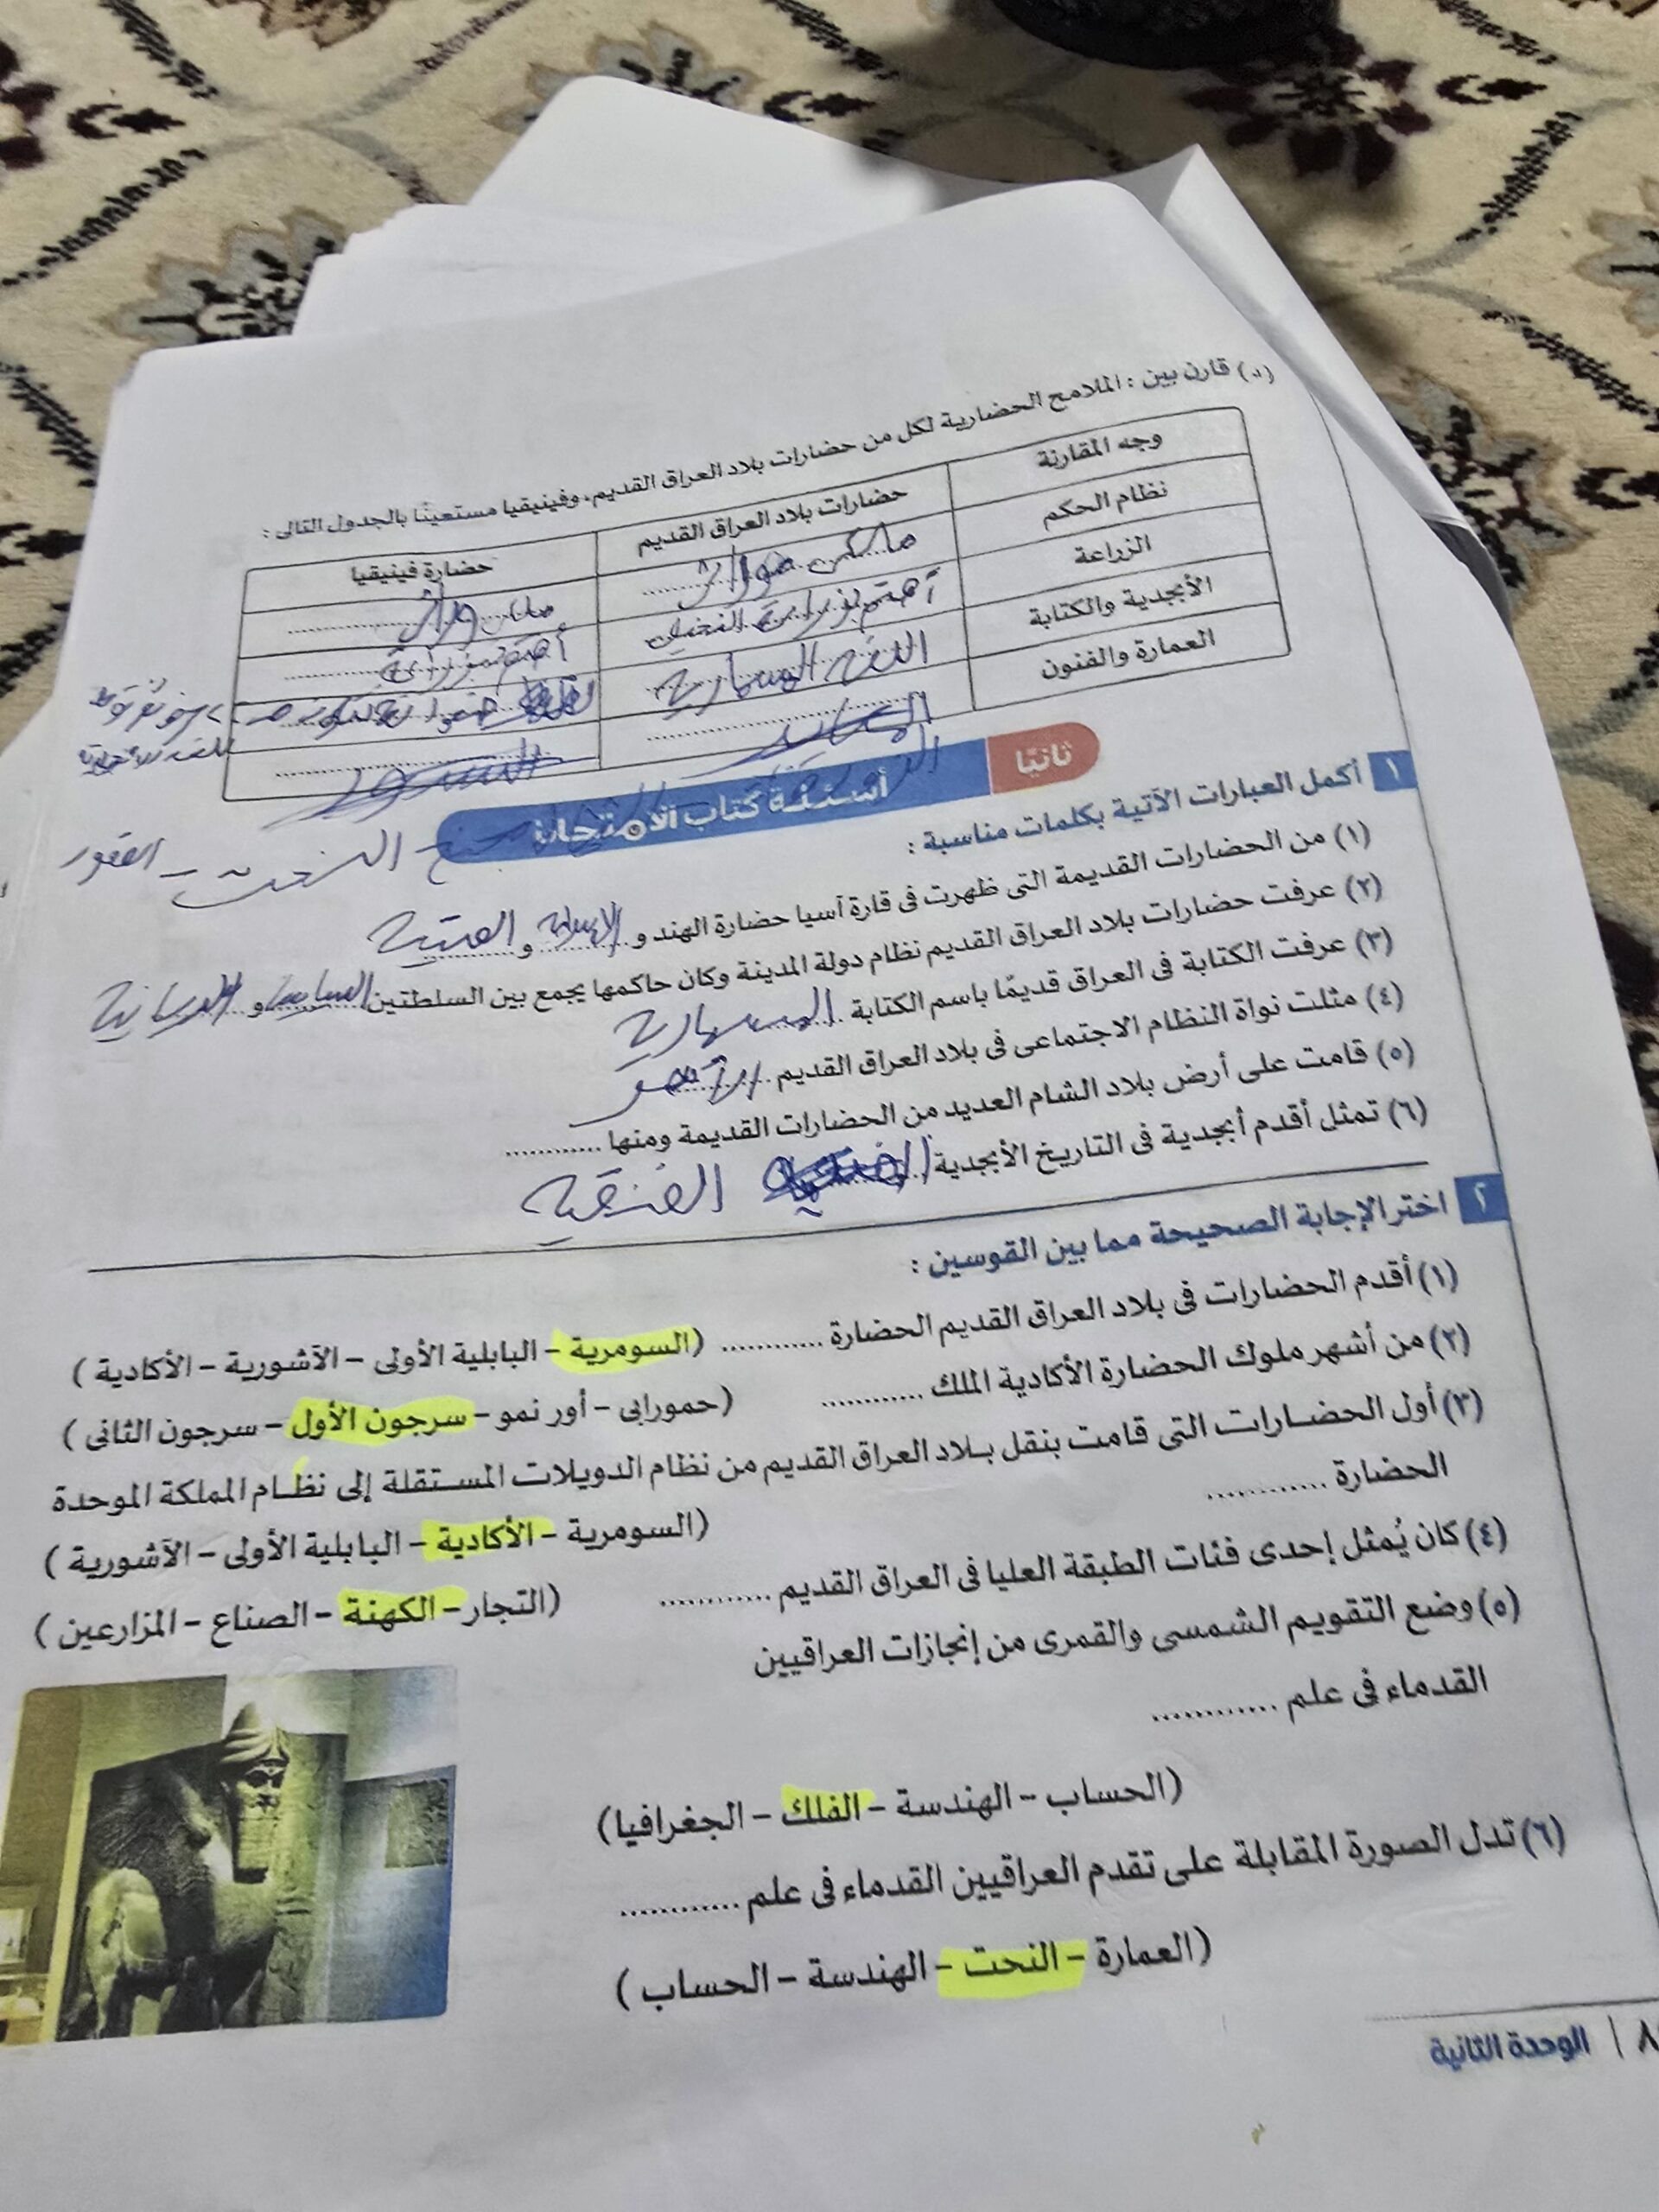 (د) قارن بين : الملامح الحضارية لكل من حضارات بلاد العراق القديم، وفينيقيا مستعينًا بالجدول التالى :
وجه المقارنة حضارات بلاد العراق القديم حضارة فينيقيا
نظام الحكم
الزراعة أهتم بزراعة النخيل
الأبجدية والكتابة
العمارة والفنون
ثانيًا أسئلة كتاب الامتحان
النحت
١ أكمل العبارات الآتية بكلمات مناسبة :
(١) من الحضارات القديمة التى ظهرت فى قارة آسيا حضارة الهند و ............ و ............
(٢) عرفت حضارات بلاد العراق القديم نظام دولة المدينة وكان حاكمها يجمع بين السلطتين ............ و ............
(٣) عرفت الكتابة فى العراق قديمًا باسم الكتابة ............ المسمارية
(٤) مثلت نواة النظام الاجتماعى فى بلاد العراق القديم ............
(٥) قامت على أرض بلاد الشام العديد من الحضارات القديمة ومنها ............
(٦) تمثل أقدم أبجدية فى التاريخ الأبجدية ............ الفنقية
٢ اختر الإجابة الصحيحة مما بين القوسين :
(١) أقدم الحضارات فى بلاد العراق القديم الحضارة ............ (السومرية – البابلية الأولى – الآشورية – الأكادية )
(٢) من أشهر ملوك الحضارة الأكادية الملك ............ (حمورابى – أور نمو – سرجون الأول – سرجون الثانى )
(٣) أول الحضارات التى قامت بنقل بلاد العراق القديم من نظام الدويلات المستقلة إلى نظام المملكة الموحدة
الحضارة ............ (السومرية – الأكادية – البابلية الأولى – الآشورية )
(٤) كان يُمثل إحدى فئات الطبقة العليا فى العراق القديم ............ (التجار – الكهنة – الصناع – المزارعين )
(٥) وضع التقويم الشمسى والقمرى من إنجازات العراقيين
القدماء فى علم ............
(الحساب – الهندسة – الفلك – الجغرافيا)
(٦) تدل الصورة المقابلة على تقدم العراقيين القدماء فى علم ............
(العمارة – النحت – الهندسة – الحساب )
الوحدة الثانية